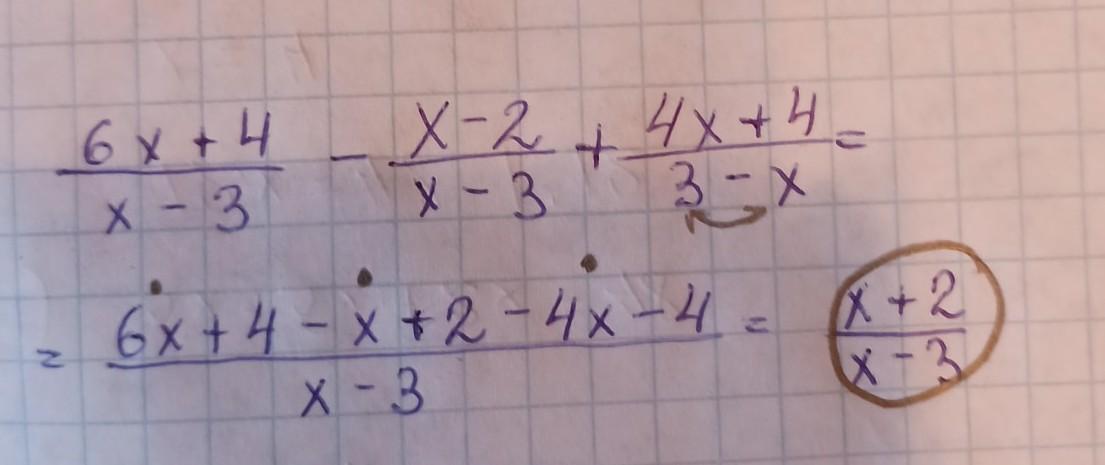 (6x + 4)/(x - 3) - (x - 2)/(x - 3) + (4x + 4)/(3 - x) =
= (6x + 4 - x + 2 - 4x - 4)/(x - 3) = (x + 2)/(x - 3)